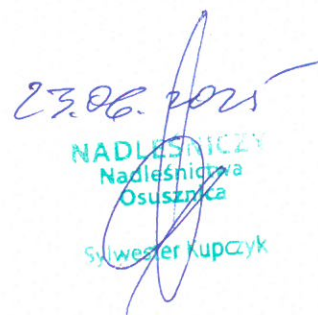 23.06.2025
NADLEŚNICZY
Nadleśnictwa
Osusznica
Sylwester Kupczyk